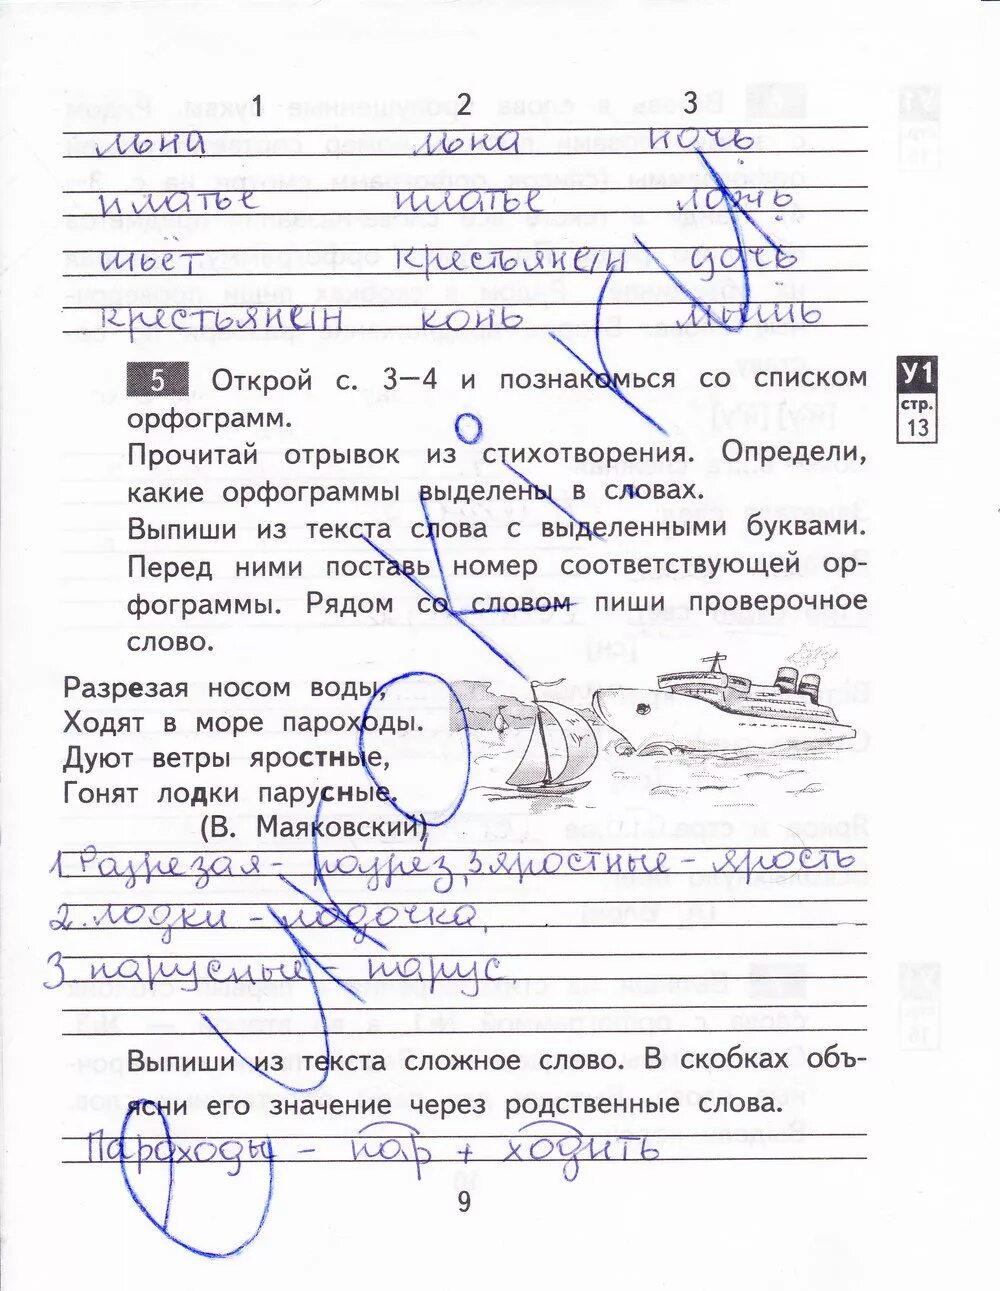 1 2 3
льна льна ночь
платье платье ложь
шьёт крестьянин дочь
крестьянин конь мышь
5 Открой с. 3—4 и познакомься со списком
орфограмм.
У1
стр.
13
Прочитай отрывок из стихотворения. Определи,
какие орфограммы выделены в словах.
Выпиши из текста слова с выделенными буквами.
Перед ними поставь номер соответствующей ор-
фограммы. Рядом со словом пиши проверочное
слово.
Разрезая носом воды,
Ходят в море пароходы.
Дуют ветры яростные,
Гонят лодки парусные.
(В. Маяковский)
1. Разрезая - разрез, 3 яростные - ярость
2. лодки - лодочка,
3 парусные - парус
Выпиши из текста сложное слово. В скобках объ-
ясни его значение через родственные слова.
Пароходы - пар + ходить
9